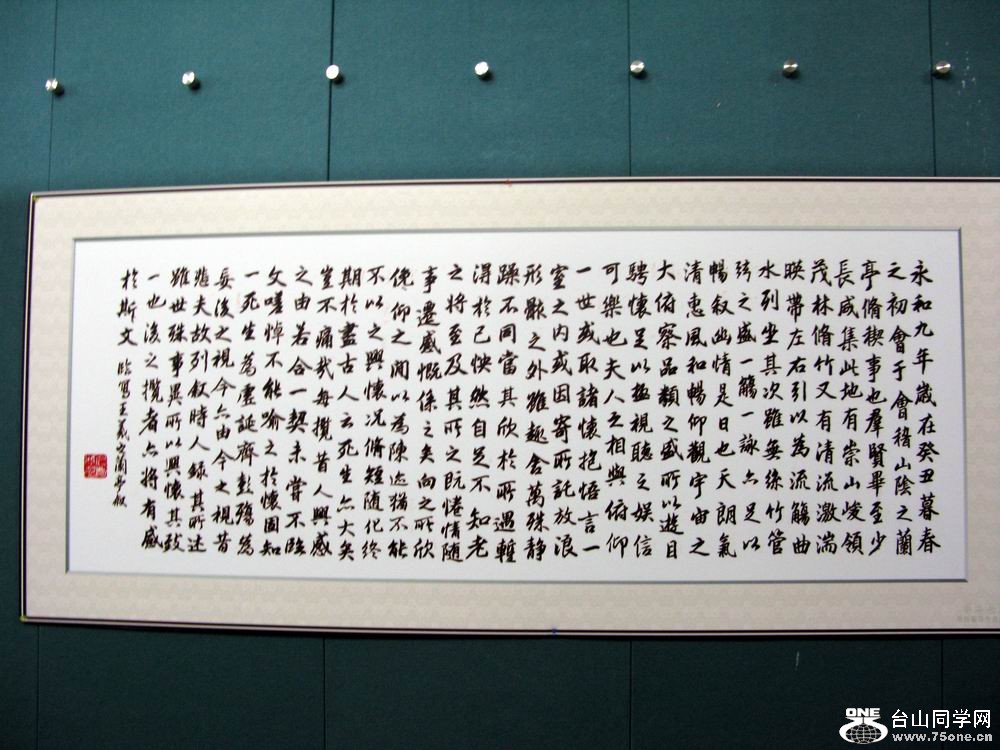 永和九年歲在癸丑暮春
之初會于會稽山陰之蘭
亭脩稧事也羣賢畢至少
長咸集此地有崇山峻領
茂林脩竹又有清流激湍
暎帶左右引以為流觴曲
水列坐其次雖無絲竹管
弦之盛一觴一詠亦足以
暢敘幽情是日也天朗氣
清惠風和暢仰觀宇宙之
大俯察品類之盛所以遊目
騁懷足以極視聽之娛信
可樂也夫人之相與俯仰
一世或取諸懷抱悟言一
室之內或因寄所託放浪
形骸之外雖趣舍萬殊静
躁不同當其欣於所遇蹔
得於己怏然自足不知老
之將至及其所之既惓情隨
事遷感慨係之矣向之所欣
俛仰之間以為陳迹猶不能
不以之興懷況脩短隨化終
期於盡古人云死生亦大矣
豈不痛哉每攬昔人興感
之由若合一契未嘗不臨
文嗟悼不能喻之於懷固知
一死生為虛誕齊彭殤為
妄後之視今亦由今之視昔
悲夫故列敘時人錄其所述
雖世殊事異所以興懷其致
一也後之攬者亦將有感
於斯文 臨寫王羲之蘭亭敘
ONE 台山同学网
www.75one.cn